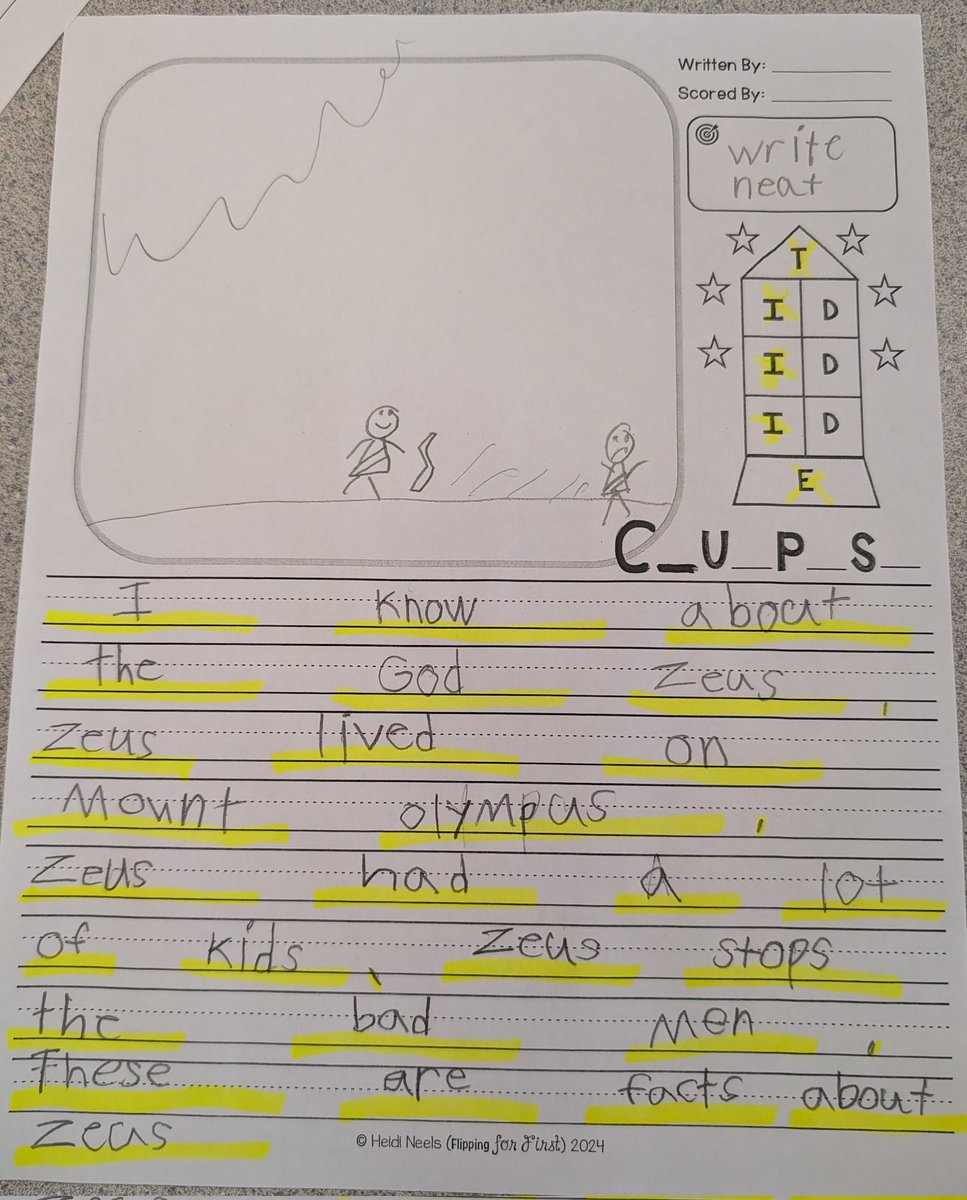 Written By:
Scored By:
write
neat
T
I D
I D
I D
E
C_U_P_S_
I know about
the God Zeus,
Zeus lived on
Mount olympus,
Zeus had a lot
of kids, Zeus stops
the bad men,
These are facts about
Zeus
© Heidi Neels (Flipping for First) 2024